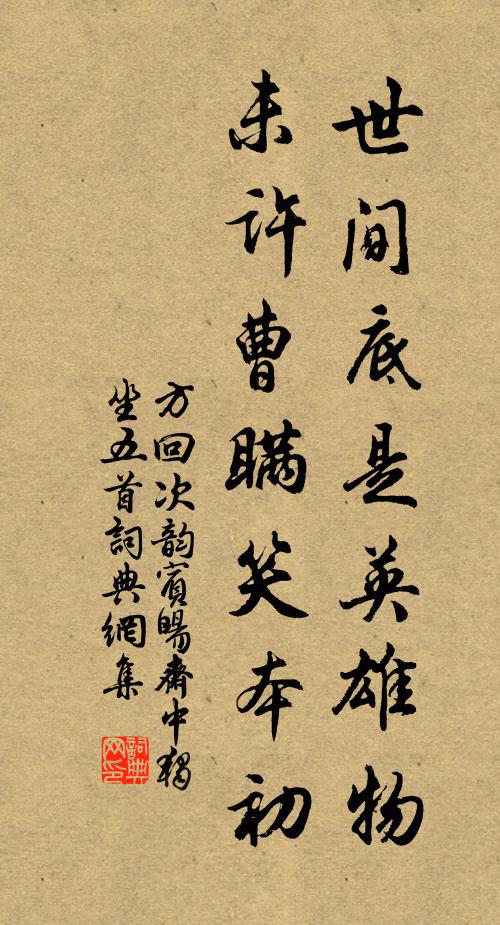 世间底是英雄物
未许曹瞒笑本初
方回次韵宾旸斋中独
坐五首词典网集
词典
网印